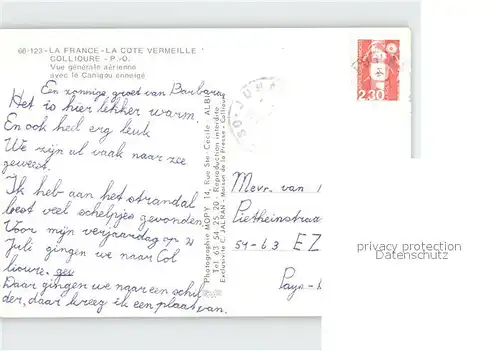 66-123 - LA FRANCE - LA COTE VERMEILLE
COLLIOURE - P.-O.
Vue générale aérienne
avec le Canigou enneigé
Een zonnige groet van Barbara
Het is hier lekker warm.
En ook heel erg leuk
We zijn al vaak naar zee
geweest.
Ik heb aan het strand al
best veel schelpjes gevonden
Voor mijn verjaardag op 21
Juli gingen we naar Col
lioure. gev
Daar gingen we naar een schil
der, daar kreeg ik een plaat van.
Photographie MOPY 14, Rue Ste-Cécile ALBI
Tél. 63 54 25 20 - Reproduction interdite
Exclusivité C. JALRAN - Maison de la Presse - Collioure
2,30
Mevr. van
Pietheinstraat
54-63 EZ
Pays-
privacy protection
Datenschutz